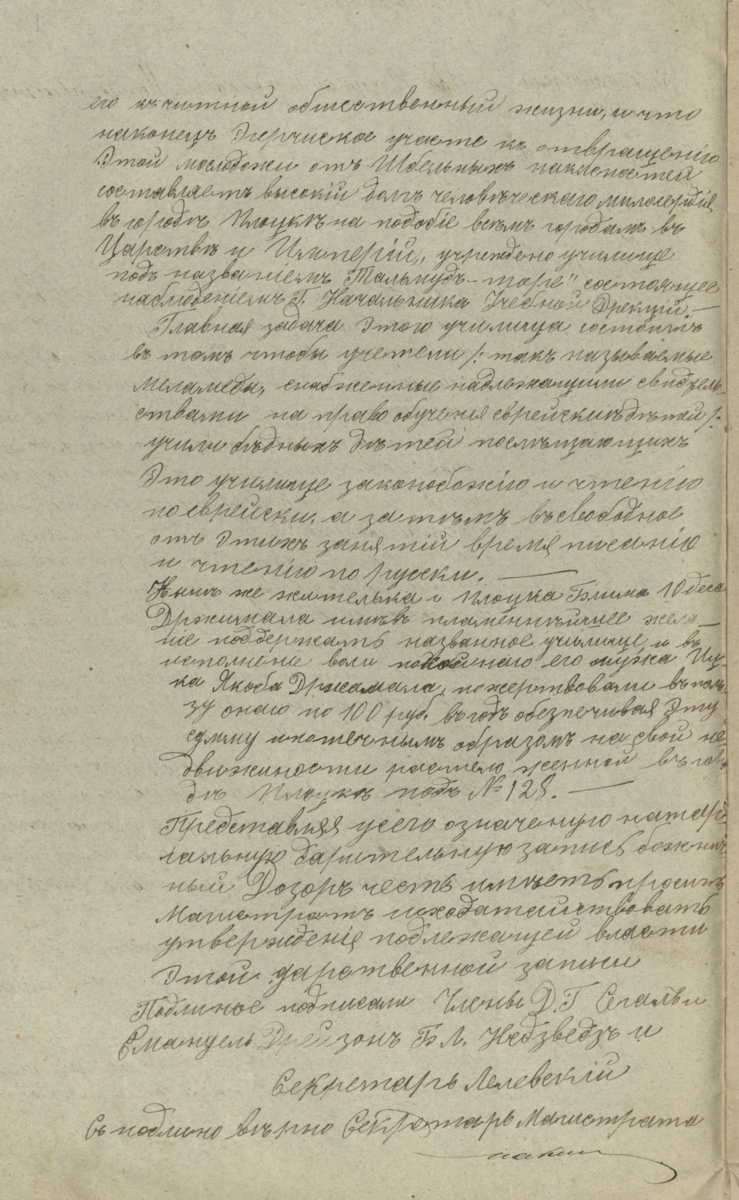 его къ читной общественный жизни, и что
наконецъ участе къ отвращенію
этой молодежи отъ наклоностей
составляетъ высокій долъ человѣческаго милосердія,
въ городѣ Плоцкѣ на подобіе всѣмъ городамъ въ
Царствѣ и Имперіи, учреждено училище
подъ названіемъ Талмудъ-торе" состоящее
наблюденіемъ Г. Начальника Учебной Дрекціи. —
Главная задача этого училища состоитъ
въ томъ чтобы учетели /: такъ называемые
меламеды, снабженные надлежащими свидѣтель-
ствами на право обученія еврейскихъ дѣтей /:
учили бѣдныхъ дѣтей посѣщающихъ
Это училище законобожію и чтенію
по еврейски, а затѣмъ въ свободное
отъ этихъ занятій время писанію
и чтенію по русски. —
Нынѣ же жителька г. Плоцка Блима
Држимала имѣя пламеннѣйшее жела-
ніе поддержать названное училище и въ
исполнене воли покойнаго его мужа Иц-
ка Якоба Држамала, пожертвовали въ поль-
зу онаго по 100 руб. въ годъ обезпечивая эту
сумму ипотечнымъ образомъ на свой не
движимости располо женной въ горо
дѣ Плоцкѣ подъ № 128. —
Представляя у сего означеную натарі
іальную дарительную запись божнич
ный Дозоръ честь имѣетъ просить
Магистратъ исходатайствовать
утвержденія подлежащей власти
этой дарственной записи
Подлиное подписали Члены Д. Г. Сегалъ и
Емануель Б. Л. Недзведзъ и
Секретарь Лелевскій
Съ подлино вѣрно Секретарь Магистрата